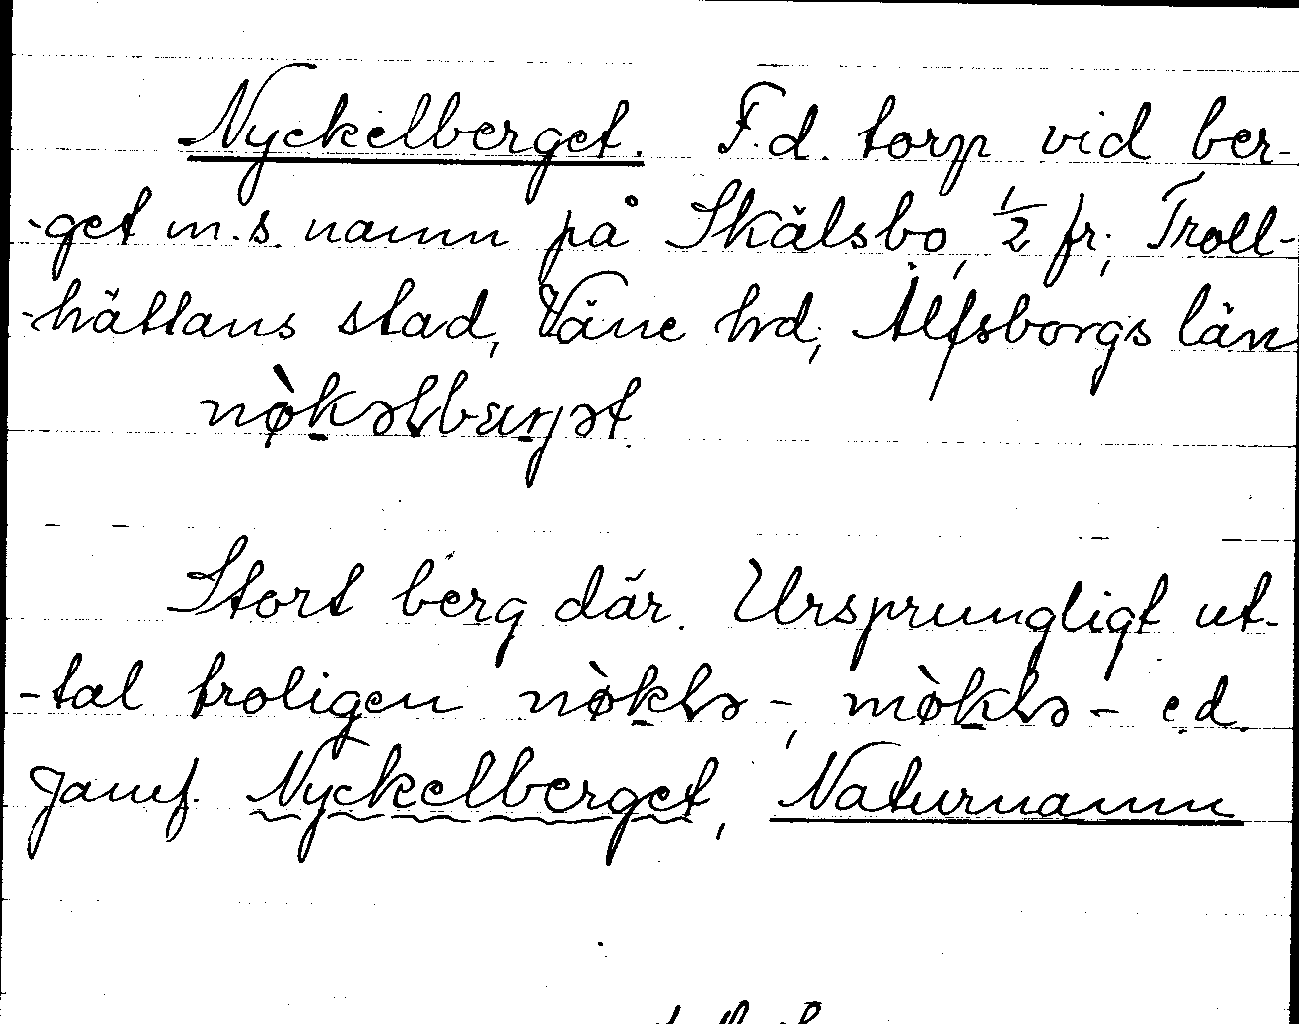 Nyckelberget. F.d. torp vid ber-
-get m.s. namn på Skälsbo, 1/2 fr; Troll-
-hättans stad, Väne hd; Älfsborgs län
nø̀kəlbærjət.
Stort berg där. Ursprungligt ut-
-tal troligen nø̀klə-, mø̀klə- e.d.
Jämf. Nyckelberget, Naturnamn